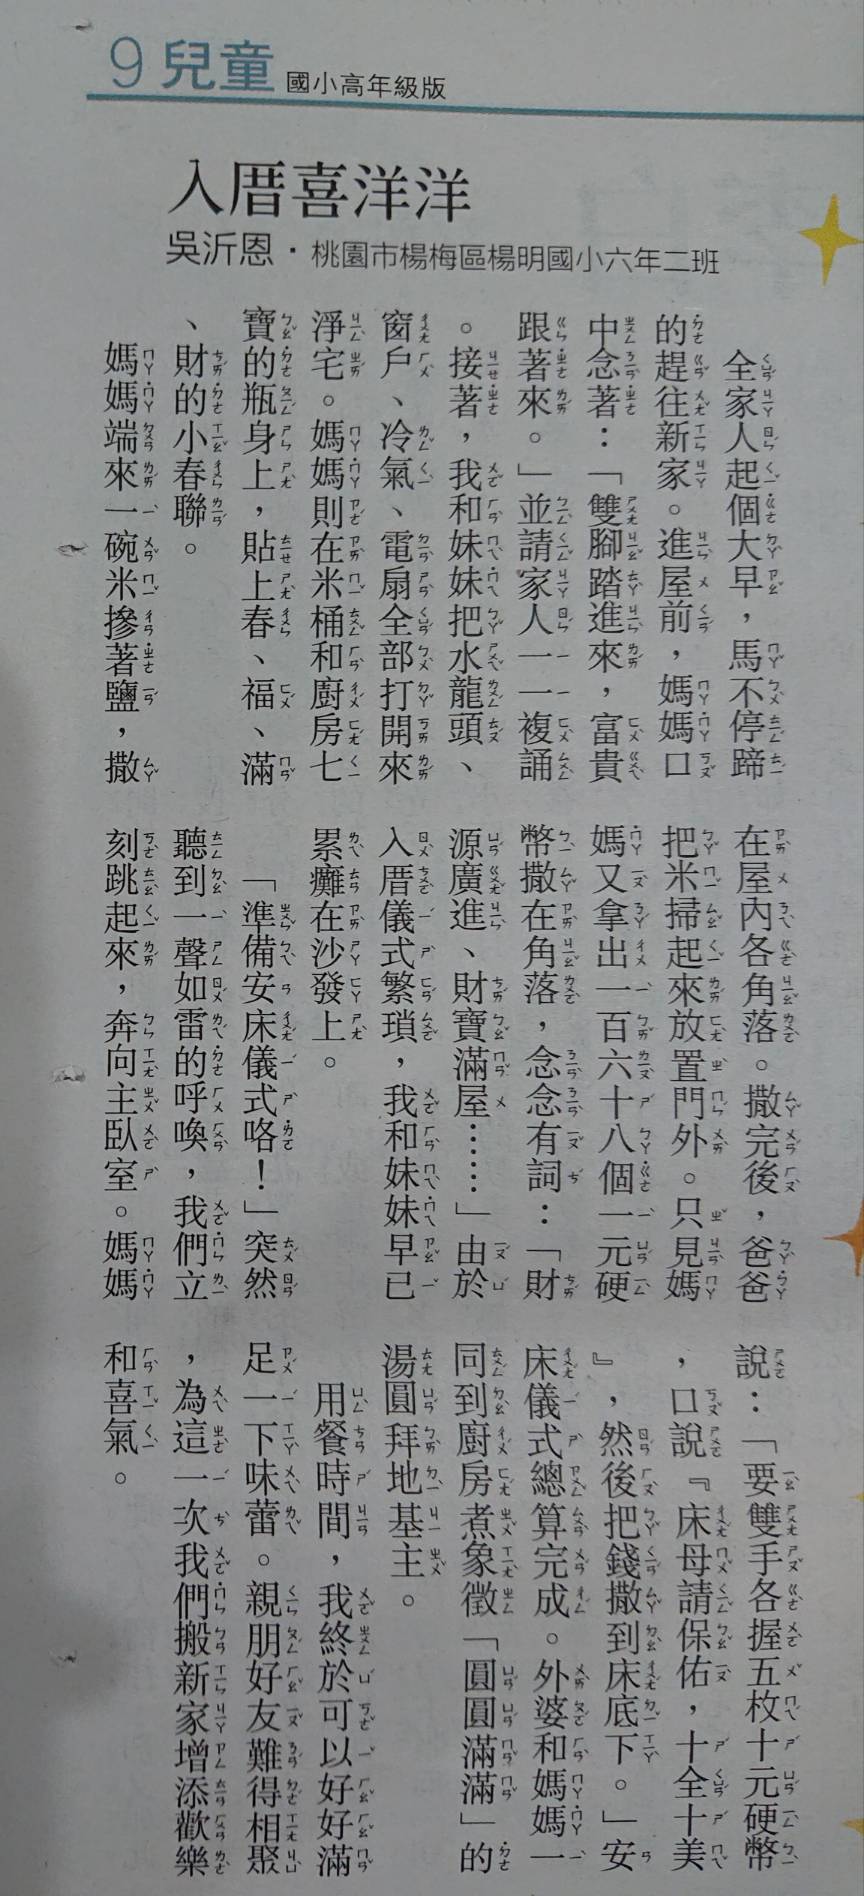 9 兒童 國小高年級版
入厝喜洋洋
吳沂恩・桃園市楊梅區楊明國小六年二班
全家人起個大早，馬不停蹄
的趕往新家。進屋前，媽媽口
中念著：「雙腳踏進來，富貴
跟著來。」並請家人一一複誦
。接著，我和妹妹把水龍頭、
窗戶、冷氣、電扇全部打開來
淨宅。媽媽則在米桶和廚房七
寶的瓶身上，貼上春、福、滿
、財的小春聯。
媽媽端來一碗米摻著鹽，撒
在屋內各角落。撒完後，爸爸
把米掃起來放置門外。只見媽
媽又拿出一百六十八個一元硬
幣撒在角落，念念有詞：「財
源廣進、財寶滿屋……」由於
入厝儀式繁瑣，我和妹妹早已
累癱在沙發上。
「準備安床儀式咯！」突然
聽到一聲如雷的呼喚，我們立
刻跳起來，奔向主臥室。媽媽
說：「要雙手各握五枚十元硬幣
，口說『床母請保佑，十全十美
』，然後把錢撒到床底下。」安
床儀式總算完成。外婆和媽媽一
同到廚房煮象徵「圓圓滿滿」的
湯圓拜地基主。
用餐時間，我終於可以好好滿
足一下味蕾。親朋好友難得相聚
，為這一次我們搬新家增添歡樂
和喜氣。